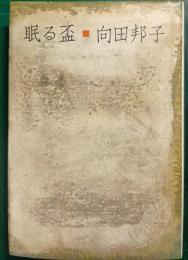 眠る盃 ■ 向田邦子